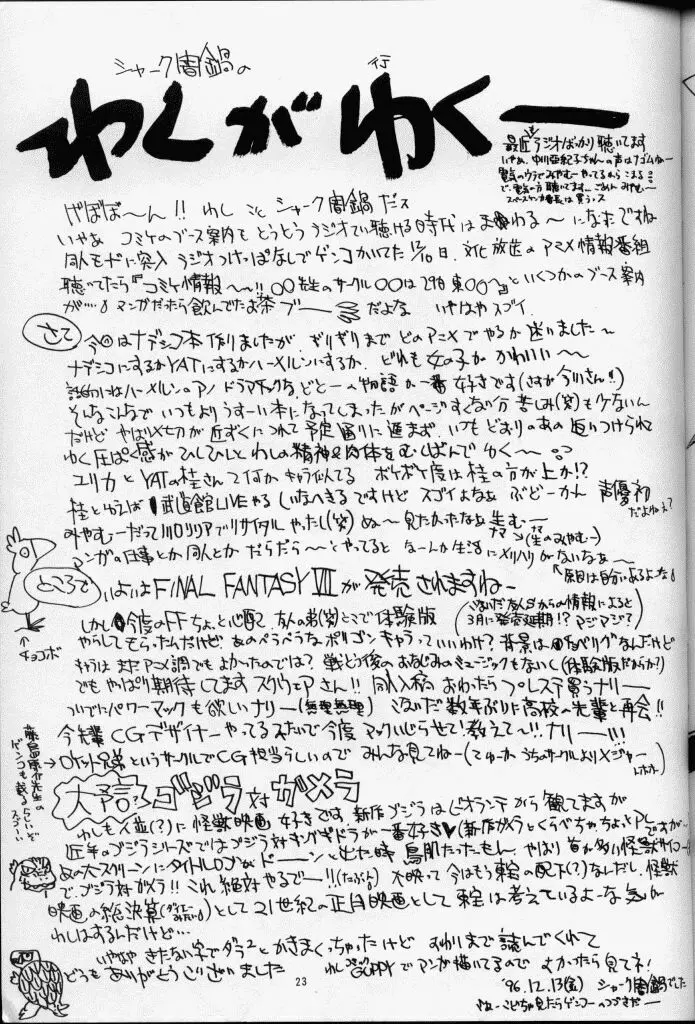 シャーク闇鍋の
行
わしがゆくー
最近ラジオばっかり聴いてます
いやぁ、中川亜紀子ちゃんの声は
電気のウラでみやむーやってるから こまる
で、電気の方聴いてます… ごめん みやむー
は買うっス
げぼぼ〜ん!! わし こと シャーク闇鍋だス
いやぁ コミケのブース案内も とうとう ラジオで聴ける時代は まわる〜 になったですね
同人モードに突入 ラジオつけっぱなしでゲンコかいてた12/10日、文化放送のアニメ情報番組
聴いてたら『コミケ情報〜!! 〇〇先生のサークル〇〇は29日東〇〇〜』といくつかのブース案内
が…。マンガだったら飲んでたお茶 ブー だよな いやはやスゴイ
さて
今回はナデシコ本作りましたが、ギリギリまで どのアニメでやるか迷いました〜
ナデシコにするかYATにするかハーメルンにするか、どれも女の子が かわいい〜〜
話的にはハーメルンのアノ ドラマチックな どとーの物語が一番好きです(さすが今川さん!!)
そんなこんなで いつもより うすーい本になってしまったが ページすくない分 苦しみ(笑)も少ないん
だけど やっぱり〆切が近ずくにつれて予定通りに進まず、いつもどおりのあの追いつけられて
ゆく圧ぱく感が ひしひしと わしの精神&肉体を むしばんで ゆく〜
ユリカとYATの桂さんって何か キャラ似てる ボケボケ度は桂の方が上か!?
桂といえば 武道館LIVEやる しいなへきるですけど スゴイよなぁ ぶどーかん 声優初
だよねぇ?
みやむーだって川口リリアでリサイタルやったし(笑) ぬ〜 見たかったなぁ 生むー
ナマ→(生のみやむー)
マンガの仕事とか同人とか だらだら〜とやってると なーんか生活にメリハリがないなぁ〜
原因は自分にあるよーな
ところで
いよいよFINAL FANTASY VIIが発売されますねー
チョコボ
しかし 今度のFFちょっと心配 友人の弟(笑)とこで体験版
(友人Sからの情報によると
3月に発売延期!? マジ マジ?)
やらしてもらったんだけど、あのぺらぺらなポリゴンキャラっていいわけ? 背景は なんだけど
キャラは まだ アニメ調でもよかったのでは? 戦とう後のおなじみのミュージックもないし(体験版だから?)
でもやっぱり期待してます スクウェアさん!! 同人入稿 おわったら プレステ買うナリー
ついでにパワーマックも欲しいナリー(無理無理) 数年ぶりに高校の先輩と再会!!
今先輩CGデザイナーやってるみたいで今度 マックいじらせて!教えて〜!! ナリー!!!
藤島康介先生の
ゲンコも載るらしいぞ
スゴーい
→ロケット兄弟というサークルでCG担当らしいので みんな見てねー(てゆーか うちのサークルよりメジャー
大予言?ゴジラ対ガメラ
わしも人並(?)に怪獣映画好きです、新作ゴジラはビオランテから観てますが
近年のゴジラシリーズではゴジラ対キングギドラが一番好き♥(新作ガメラとくらべちゃ、ちょっとアレ
ですが…)
あの大スクリーンにタイトルロゴがドーーンと出た時 鳥肌たったもん、やはり 首が多い怪獣サイコー
で、ゴジラ対ガメラ!! これ絶対やるでー!!(たぶん) 大映って今はもう東宝の配下(?)なんだし、怪獣
映画の総決算 として21世紀の正月映画として 東宝は考えているよーな気が
わしはするんだけど…
いやはや きたない字でダラダラとかきまくっちゃったけど おわりまで読んでくれて
どうも ありがとうございました
わし GUPPYでマンガ描いてるので よかったら見てネ!
'96.12.13(金) シャーク闇鍋でした
さぁーこどちゃ見たらゲンコーのつづきだー
23